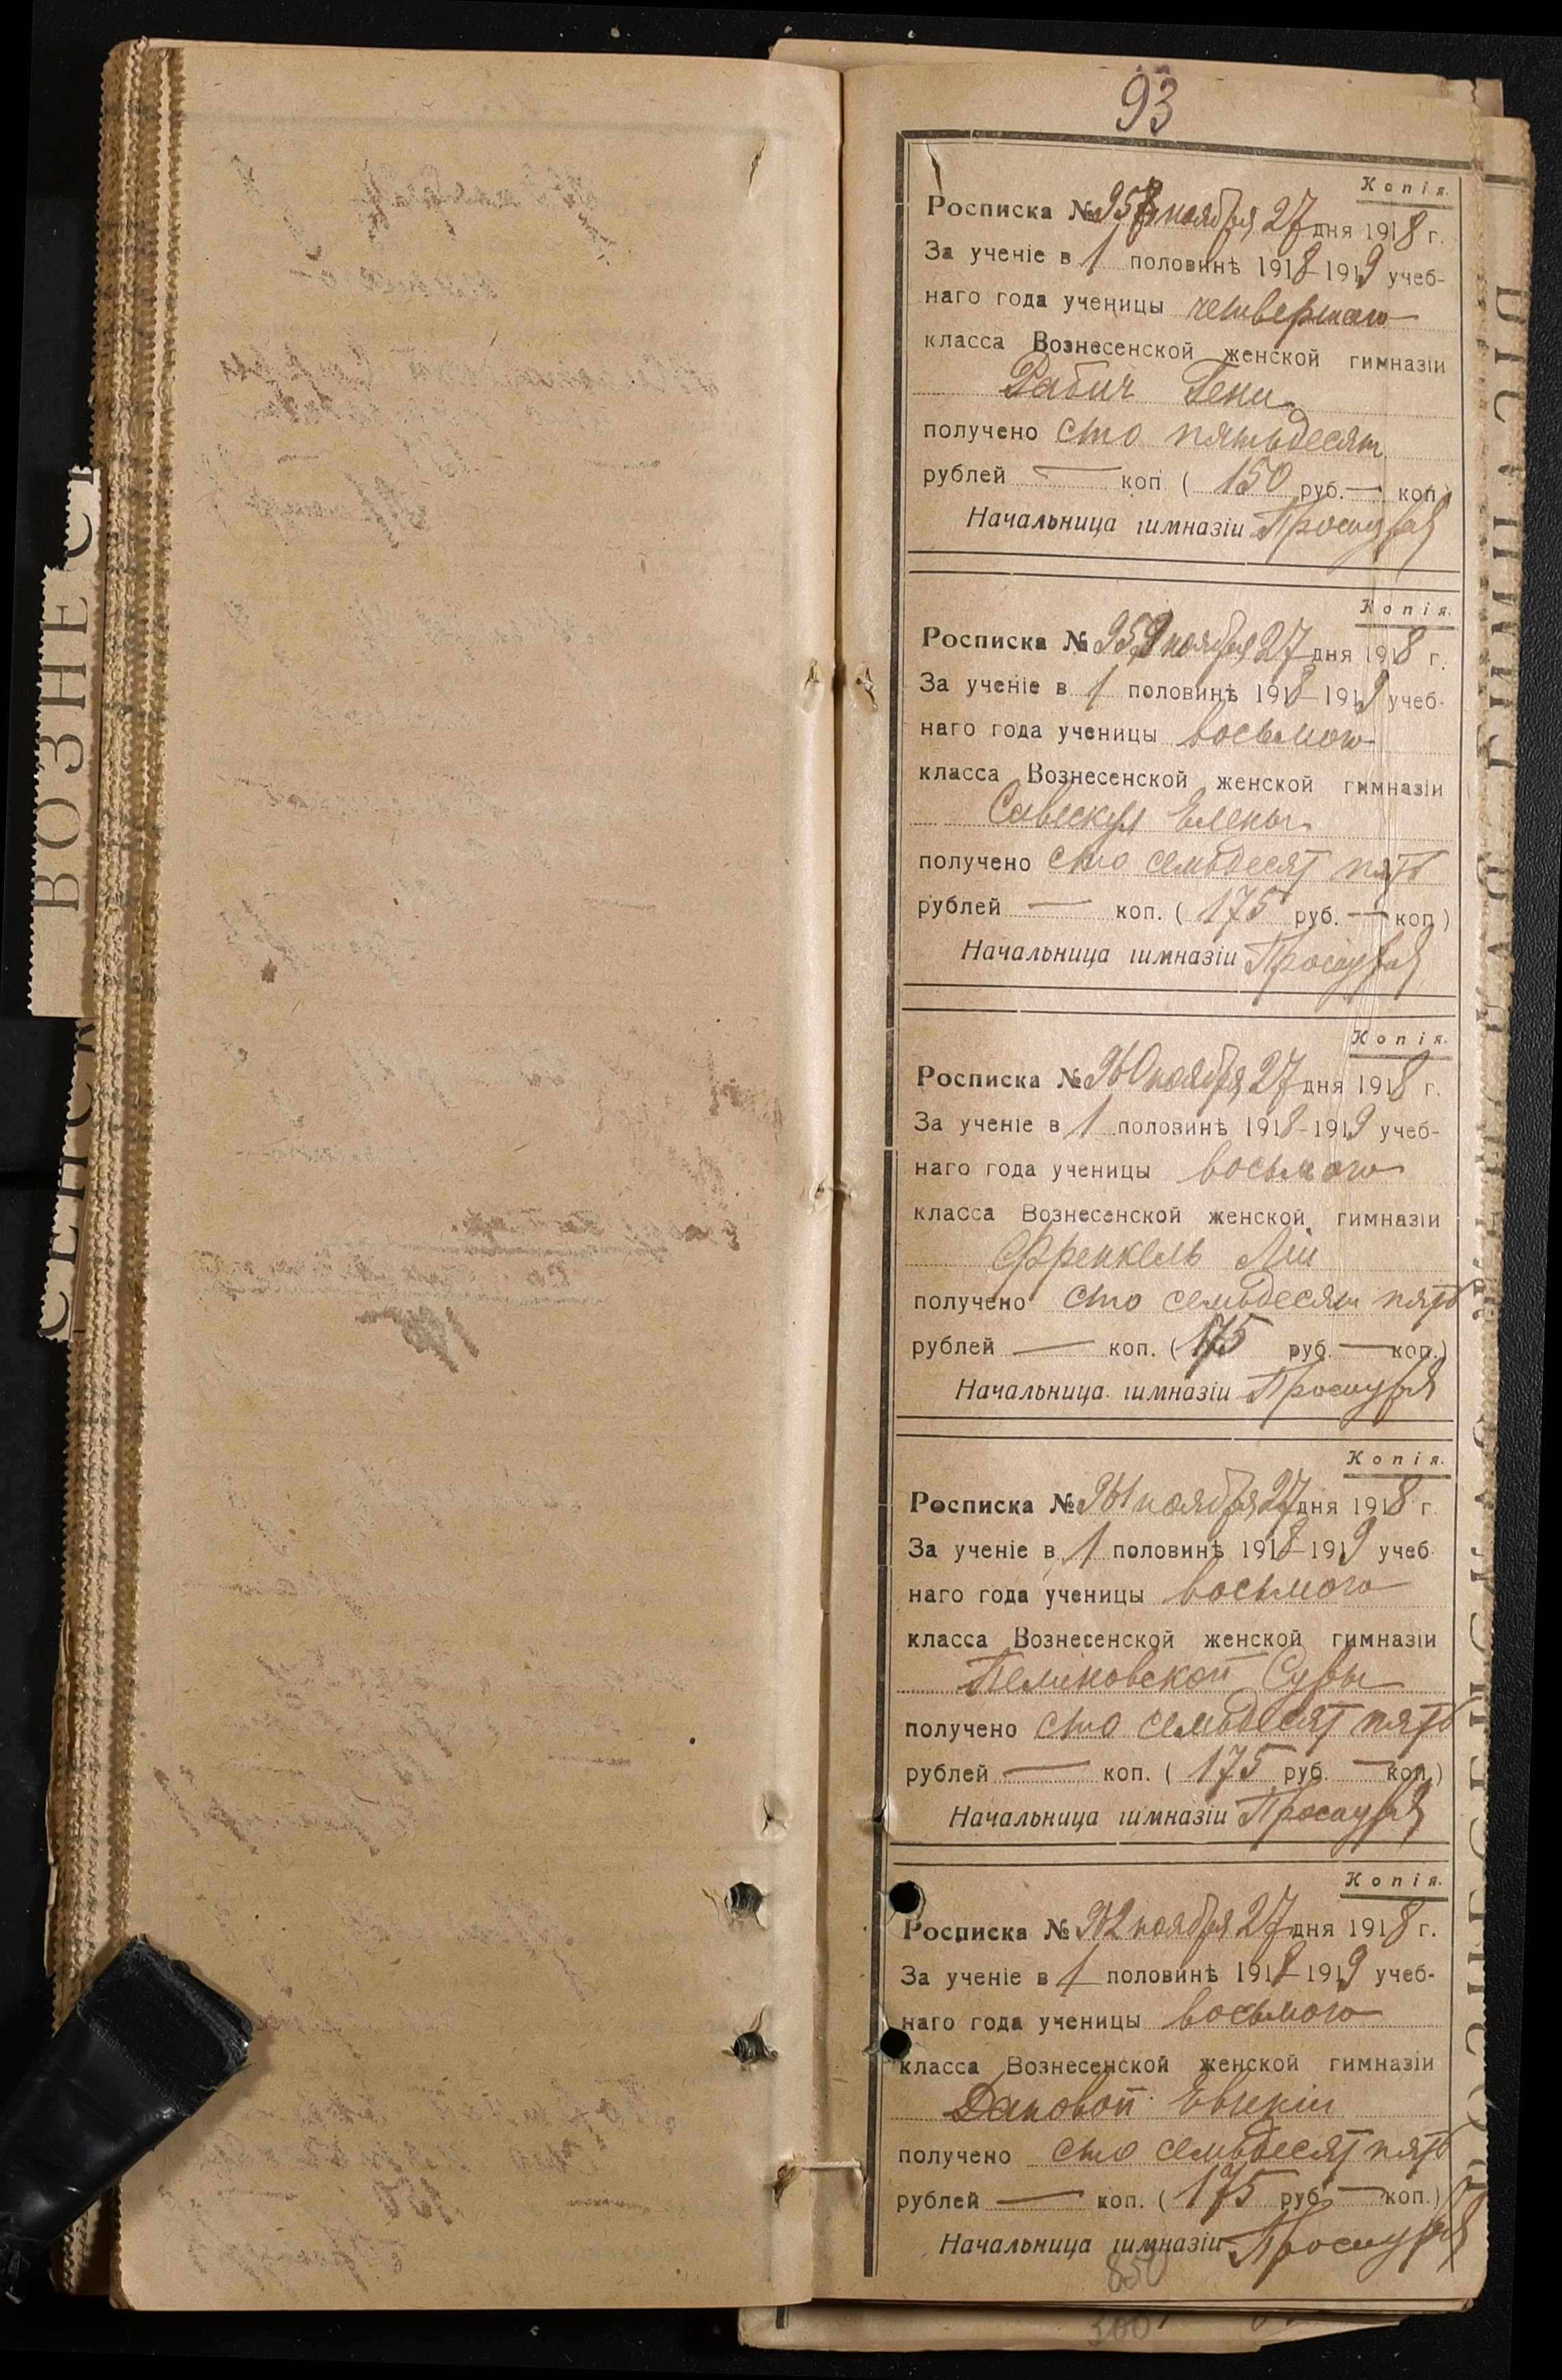 93
Копія.
Росписка № 958 ноября 27 дня 1918 г.
За ученіе в 1 половинѣ 1918-1919 учеб-
наго года ученицы четвертаго
класса Вознесенской женской гимназіи
Рабич Гени
получено сто пятьдесят
рублей — коп. ( 150 руб. — коп.)
Начальница гимназіи
Копія.
Росписка № 959 ноября 27 дня 1918 г.
За ученіе в 1 половинѣ 1918-1919 учеб-
наго года ученицы восьмого
класса Вознесенской женской гимназіи
Савескул Елены
получено сто семьдесят пять
рублей — коп. ( 175 руб. — коп.)
Начальница гимназіи
Копія.
Росписка № 960 ноября 27 дня 1918 г.
За ученіе в 1 половинѣ 1918-1919 учеб-
наго года ученицы восьмого
класса Вознесенской женской гимназіи
Френкель Ліи
получено сто семьдесят пять
рублей — коп. ( 175 руб. — коп.)
Начальница гимназіи
Копія.
Росписка № 961 ноября 27 дня 1918 г.
За ученіе в 1 половинѣ 1918-1919 учеб-
наго года ученицы восьмого
класса Вознесенской женской гимназіи
Суры
получено сто семьдесят пять
рублей — коп. ( 175 руб. — коп.)
Начальница гимназіи
Копія.
Росписка № 962 ноября 27 дня 1918 г.
За ученіе в 1 половинѣ 1918-1919 учеб-
наго года ученицы восьмого
класса Вознесенской женской гимназіи
Дановой Евгеніи
получено сто семьдесят пять
рублей — коп. ( 175 руб. — коп.)
Начальница гимназіи
850
300
ВОЗНЕС